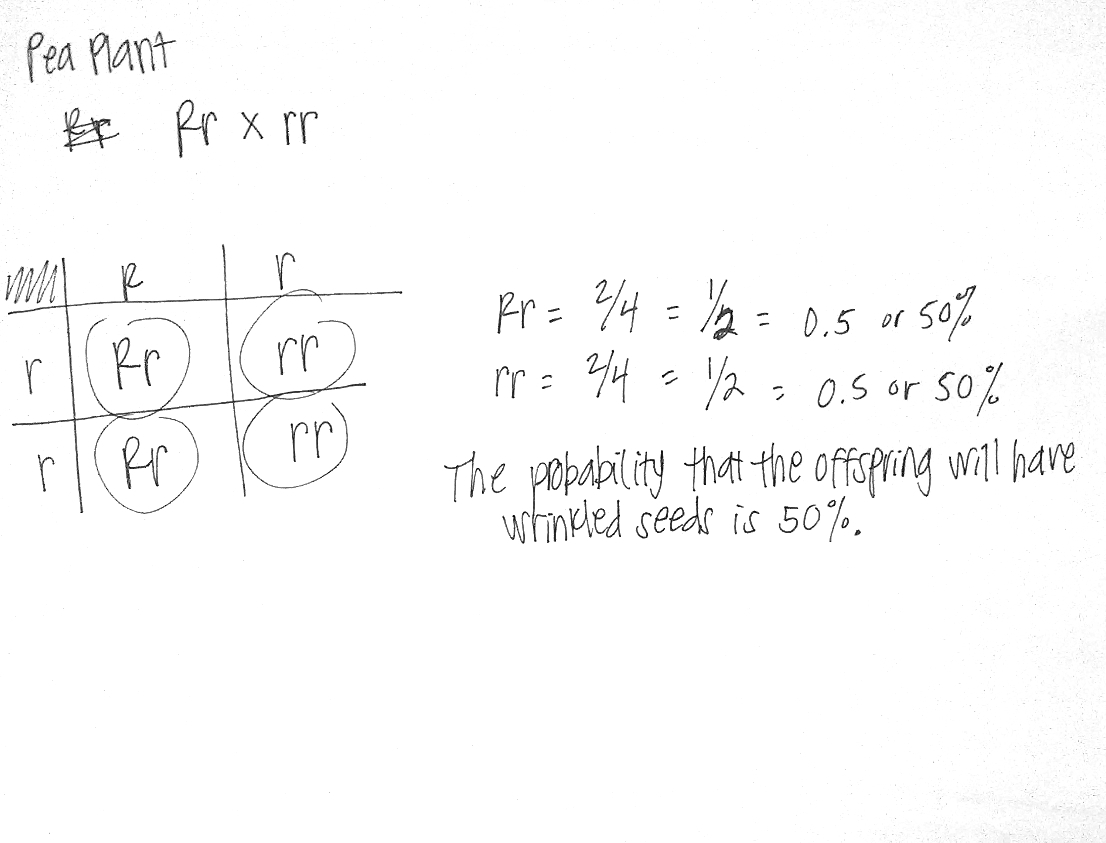 Pea Plant
Rr Rr x rr
R r
r Rr rr
r Rr rr
Rr = 2/4 = 1/2 = 0.5 or 50%
rr = 2/4 = 1/2 = 0.5 or 50%
The probability that the offspring will have
wrinkled seeds is 50%.